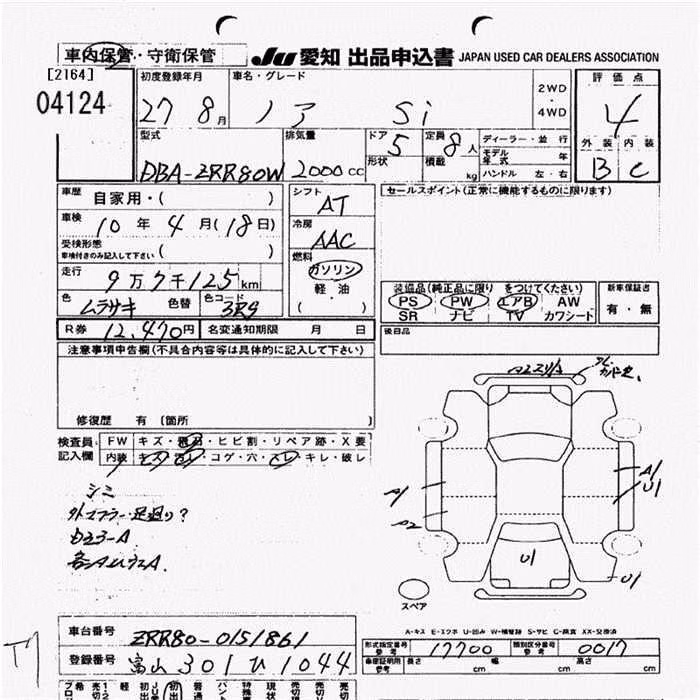 車内保管・守衛保管
JU 愛知 出品申込書 JAPAN USED CAR DEALERS ASSOCIATION
[2164]
04124
初度登録年月 車名・グレード 2WD・4WD 評価点
27 8月 ノア Si 4
型式 排気量 ドア 形状 定員 積載 ディーラー・並行 外装 内装
DBA-ZRR80W 2000cc 5 8人 kg モデル年式 年 B C
ハンドル 左・右
車歴 自家用・( ) シフト AT セールスポイント(正常に機能するものに限ります)
車検 10年 4月(18日) 冷房 AAC
受検形態 車検付きのみ記入して下さい ( )
燃料 ガソリン 軽・油 ( )
走行 9万7千125km
色 ムラサキ 色替 色コード 3R9
装備品(純正品に限り をつけてください) 新車保証書
PS PW エアB AW 有・無
SR ナビ TV カワシート
R券 12,470円 名変通知期限 月 日 後日品
注意事項申告欄(不具合内容等は具体的に記入して下さい)
修復歴 有 (箇所 )
検査員記入欄 FW キズ・ ・ヒビ割・リペア跡・X要
内装 キズ・ ・コゲ・穴・スレ・キレ・破レ
シミ
A1
A2
A1
U1
U1
U1
スペア
A-キズ E-エクボ U-凹み W-補修跡 S-サビ C-腐食 XX-交換済
車台番号 ZRR80-0151861
登録番号 富山 301 ひ 1044
型式指定番号 参考 17700 類別区分番号 参考 0017
車庫証明用 参考 長さ cm 幅 cm 高さ cm